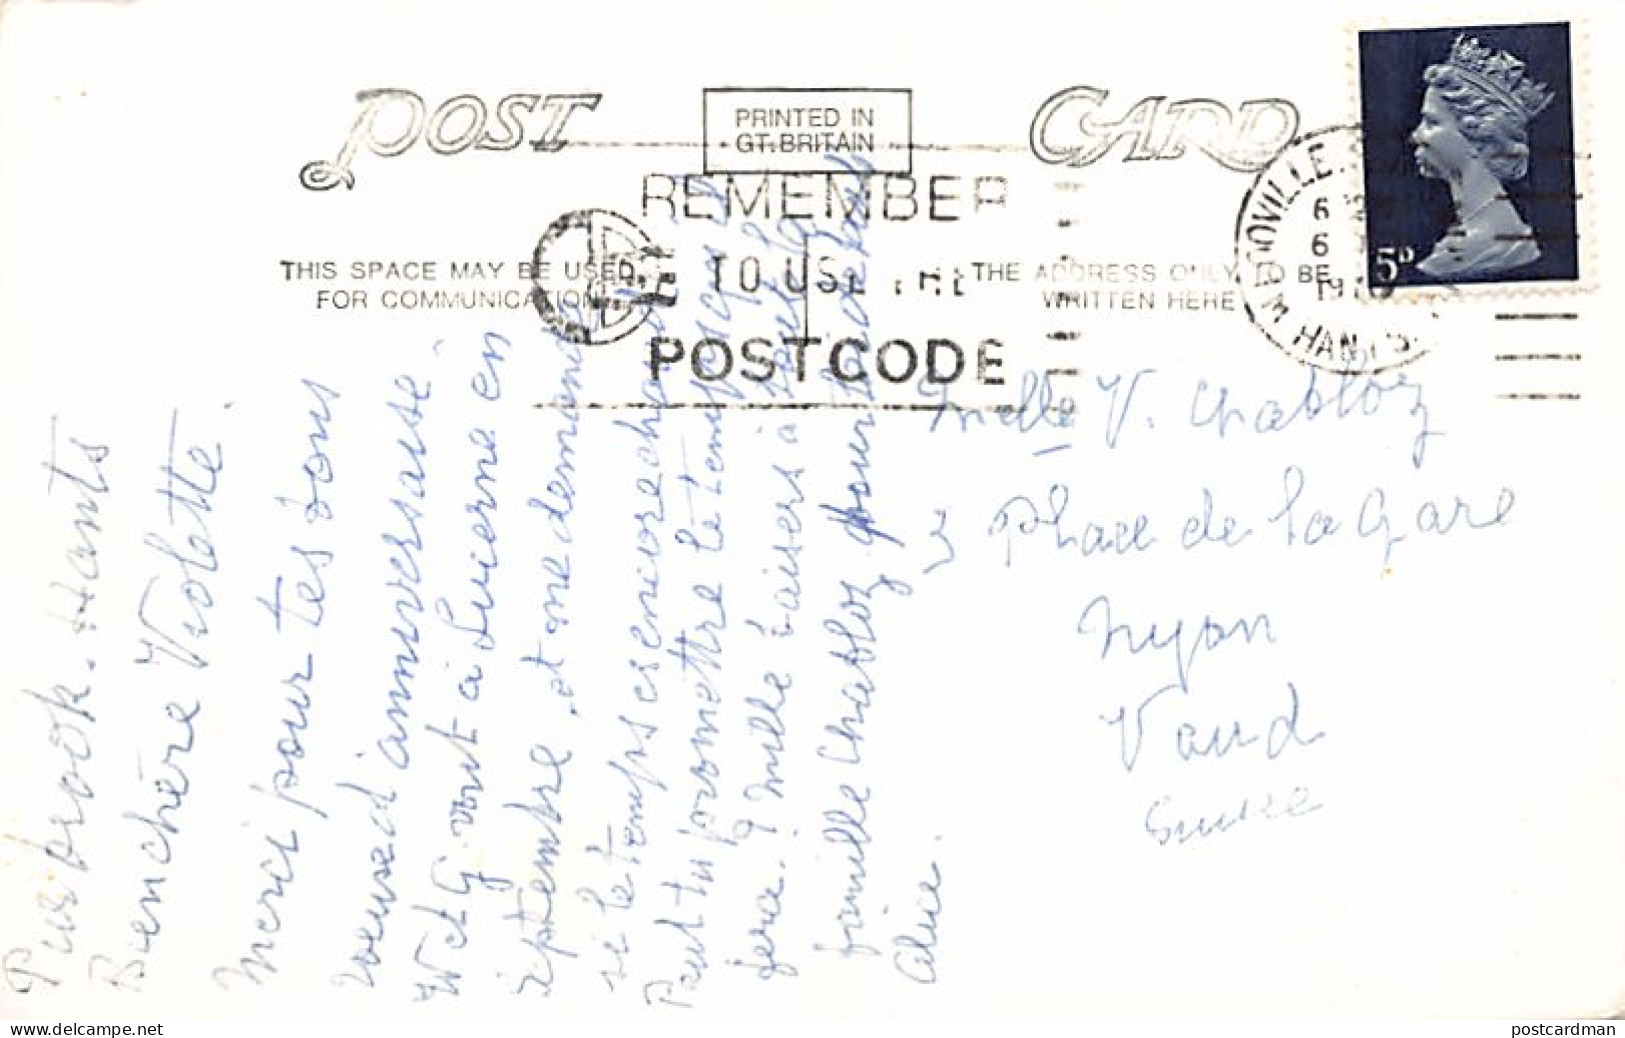 POST CARD
PRINTED IN
GT. BRITAIN
REMEMBER
TO USE THE
POSTCODE
THIS SPACE MAY BE USED
FOR COMMUNICATION
THE ADDRESS ONLY TO BE
WRITTEN HERE
WATERLOOVILLE
6
6
19
HANTS
5D
Purbrook. Hants
Bien chère Violette.
Merci pour tes bons
voeux d'anniversaire
W et G vont à Lucerne en
septembre, et me demande
si le temps sera encore chaud
Peut tu promettre le temps qu'il
fera. ? Mille baisers à toute la
famille Chabloz pour toi de
Alice.
Melle V. Chabloz
Place de la Gare
Nyon
Vaud
Suisse
www.delcampe.net
postcardman